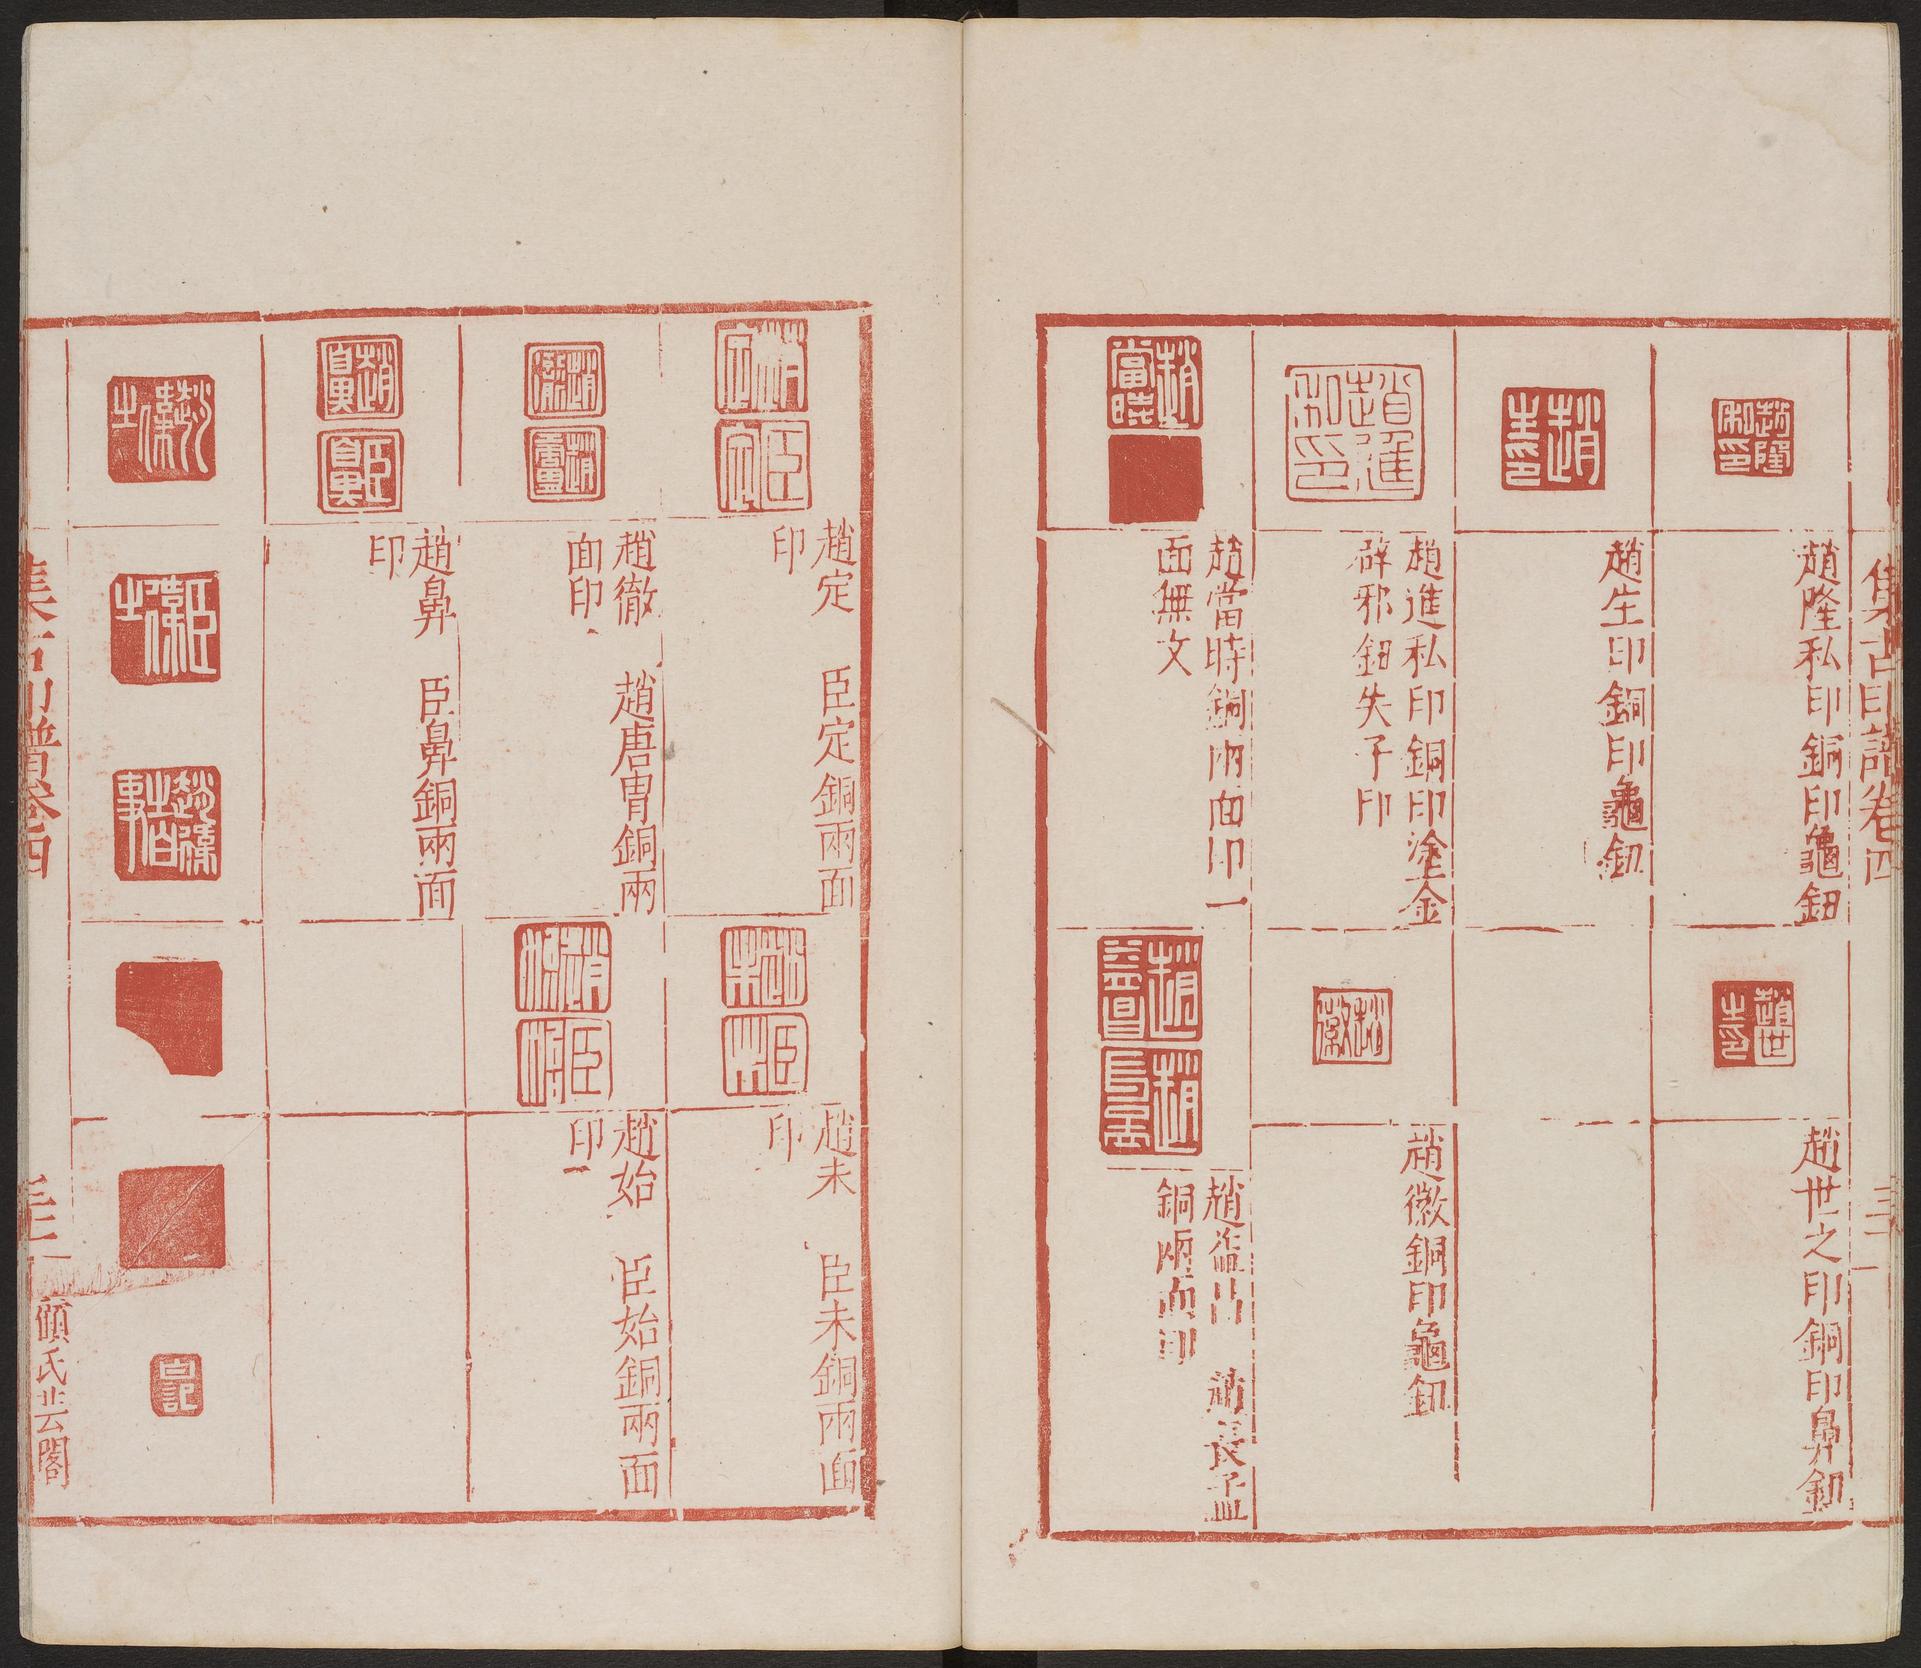 集古印譜卷四
趙隆私印銅印龜鈕
趙世之印銅印鼻鈕
趙生印銅印龜鈕
趙進私印銅印塗金
辟邪鈕失子印
趙徽銅印龜鈕
趙當時銅兩面印一
面無文
趙益昌 趙長孟
銅兩面印
趙定 臣定銅兩面
印
趙未 臣未銅兩面
印
趙徹 趙唐冑銅兩
面印
趙始 臣始銅兩面
印
趙鼻 臣鼻銅兩面
印
集古印譜卷四
顧氏芸閣